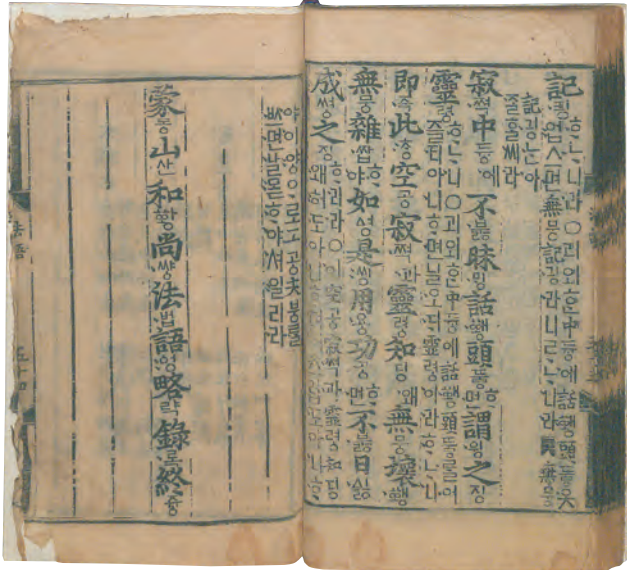 記긩ᄒᆞᄂᆞ니라○괴외ᄒᆞᆫ中듕에話ᅘᅪᆼ頭뚷옷
업스면無뭉記긩라니ᄅᆞᄂᆞ니라無뭉
記긩ᄂᆞᆫ아
졸ᄒᆞᆯ씨라
寂쪅中듕에不붏昧밍話ᅘᅪᆼ頭뚷ᄒᆞ면謂윙之징
靈령ᄒᆞᄂᆞ니○괴외ᄒᆞᆫ中듕에話ᅘᅪᆼ頭뚷를어
즐티아니ᄒᆞ면닐오ᄃᆡ靈령이라ᄒᆞᄂᆞ니
即즉此ᄎᆞᆼ空콩寂쪅과靈령知딩왜無뭉壞ᅘᅬᆼ
無뭉雜짭ᄒᆞ야如ᅀᅧᆼ是씽用용功공ᄒᆞ면不붏日ᅀᅵᇙ
成쎵之징ᄒᆞ리라○이空콩寂쪅과靈령知딩
왜허도아니ᄒᆞ며
야이양ᄋᆞ로工공夫붕를
ᄡᅳ면날올ᄒᆞ야셔일리라
蒙몽山산和ᅘᅪᆼ尚썅法법語ᅌᅥᆼ略략錄록終즁
法語